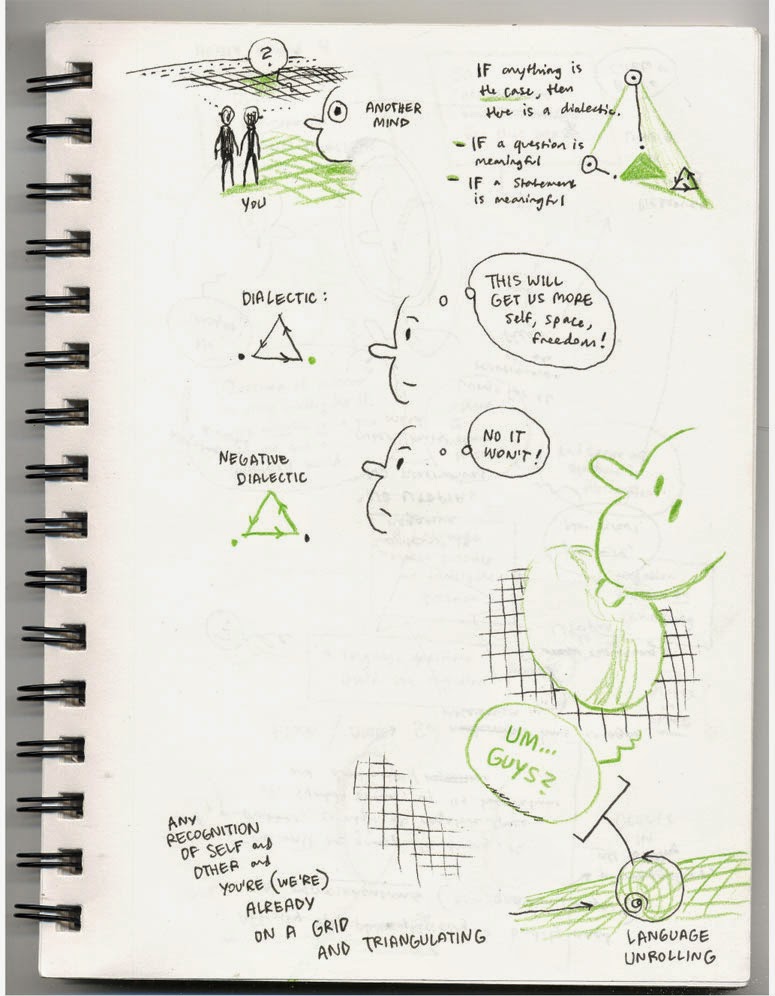 ?
ANOTHER
MIND
YOU
IF anything is
the case, then
there is a dialectic.
- IF a question is
meaningful
- IF a statement
is meaningful
DIALECTIC:
THIS WILL
GET US MORE
self, space,
freedom!
NEGATIVE
DIALECTIC
NO IT
WON'T!
UM...
GUYS?
ANY
RECOGNITION
OF SELF and
OTHER and
YOU'RE (WE'RE)
ALREADY
ON A GRID
AND TRIANGULATING
LANGUAGE
UNROLLING